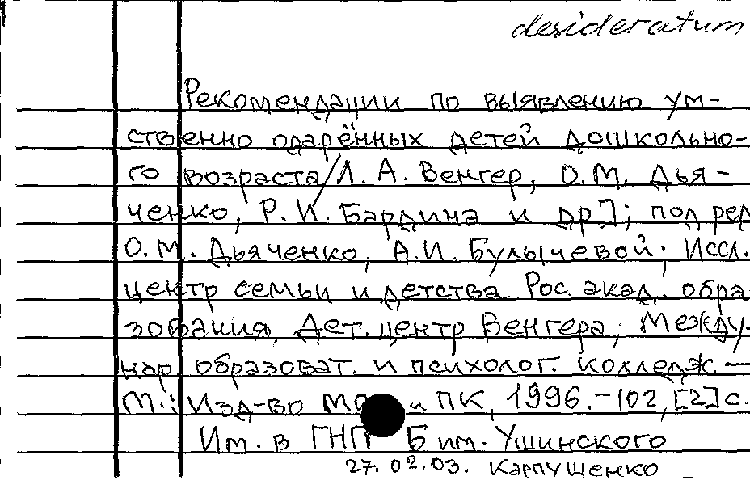 desideratum
Рекомендации по выявлению ум-
ственно одарённых детей дошкольно-
го возраста/Л. А. Венгер, О.М. Дья-
ченко, Р. И. Бардина и др.]; под ред
О.М. Дьяченко, А.И. Булычевой; Иссл.
центр семьи и детства Рос. акад. обра
зования, Дет. центр Венгера, Между-
нар образоват. и психолог. колледж. —
М.: Изд-во и ПК, 1996. -102, [2] с.
Им. в ГНПБ им. Ушинского
27.02.03. Карпущенко